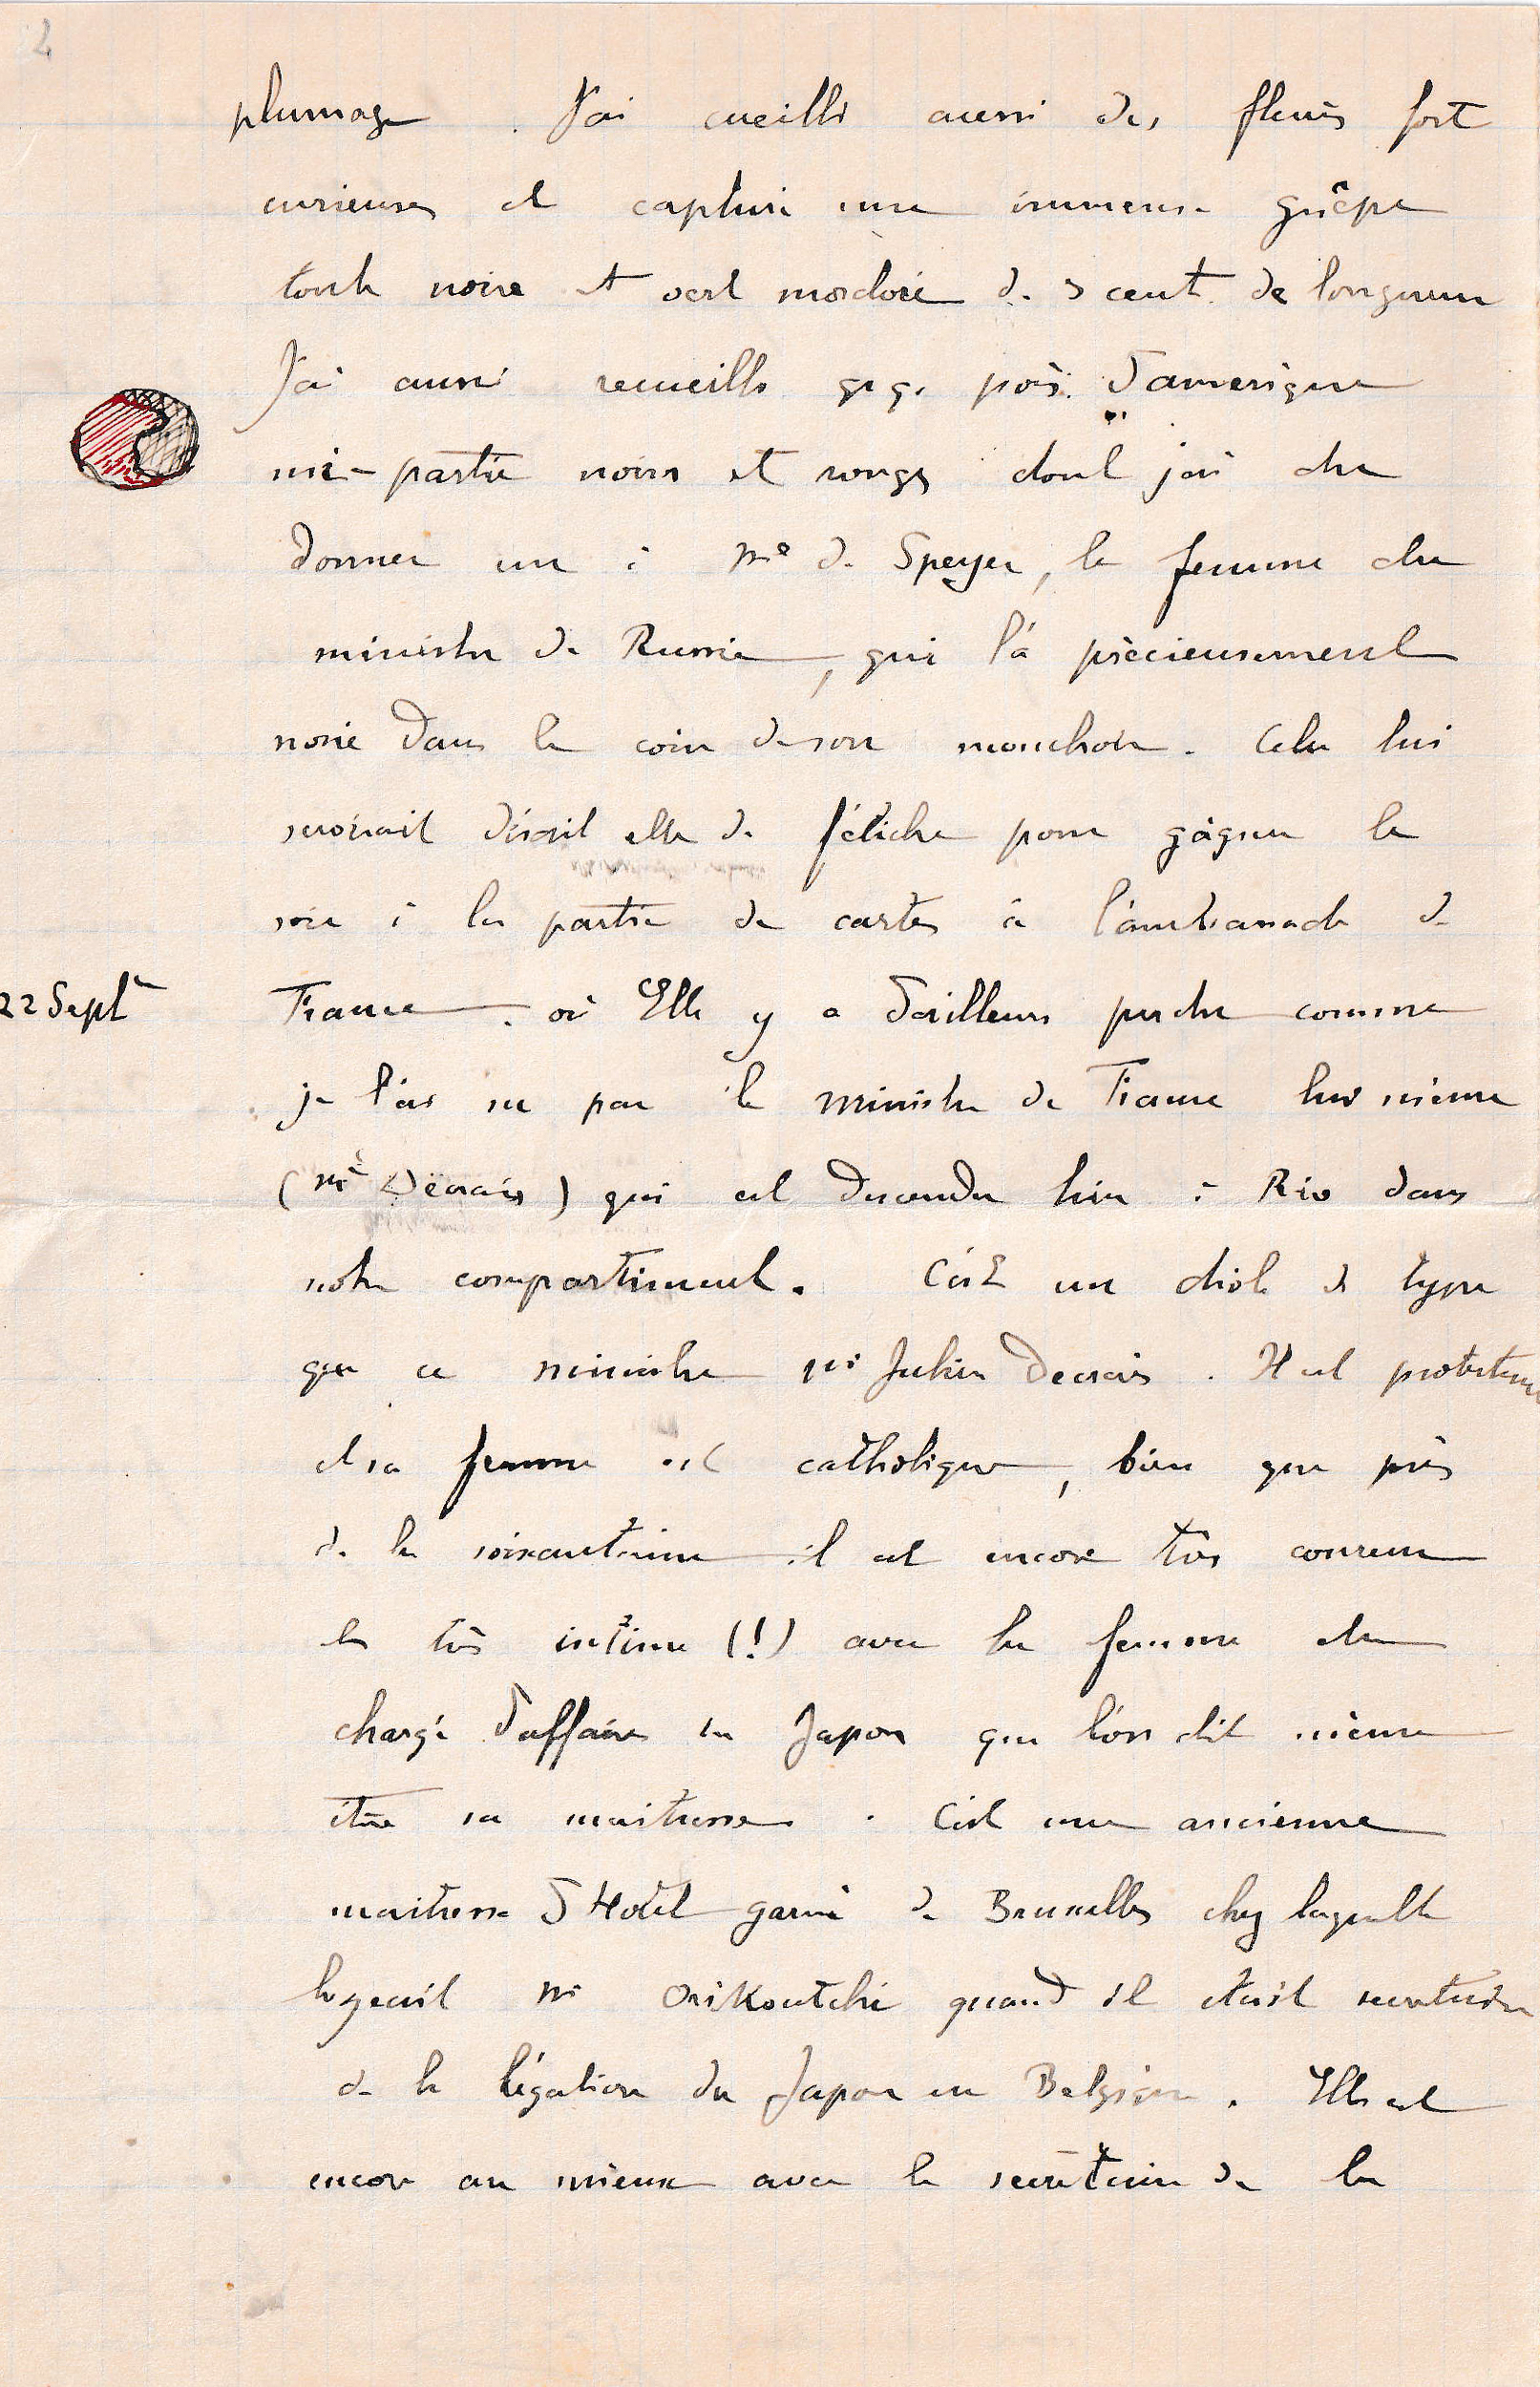 2
plumage. J'ai cueilli aussi des fleurs fort
curieuses et capturé une immense guêpe
toute noire et vert mordoré de 5 cent. de longueur
J'ai aussi recueilli qq. pois d'amerique
mi-partie noirs et rouges dont j'ai du
donner un à Me de Speyer, la femme du
ministre de Russie, qui l'a précieusement
noué dans le coin de son mouchoir. Cela lui
servirait disait elle de fétiche pour gagner le
soir à la partie de cartes à l'ambassade de
22 Septr
France. où Elle y a d'ailleurs perdu comme
je l'ai su par le ministre de France lui même
(Mr Decrais) qui est descendu hier à Rio dans
notre compartiment. C'est un drole de type
que ce ministre Mr Julien Decrais. Il est protestant
et sa femme est catholique, bien que près
de la soixantaine il est encore très coureur
et très intime (!) avec la femme du
chargé d'affaires du Japon que l'on dit même
être sa maitresse. C'est une ancienne
maitresse d'Hotel garni de Bruxelles chez laquelle
logeait Mr Orikoutchi quand il était secrétaire
de la légation du Japon en Belgique. Elle est
encore au mieux avec le secrétaire de la